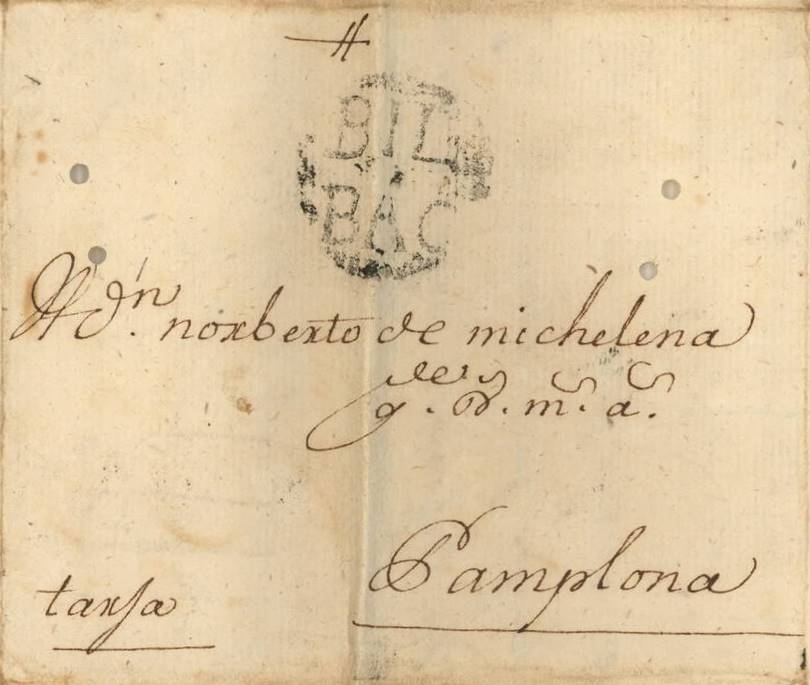 BIL
BAO
A Dn. norberto de michelena
gde. Ds. ms. as.
Pamplona
tarja